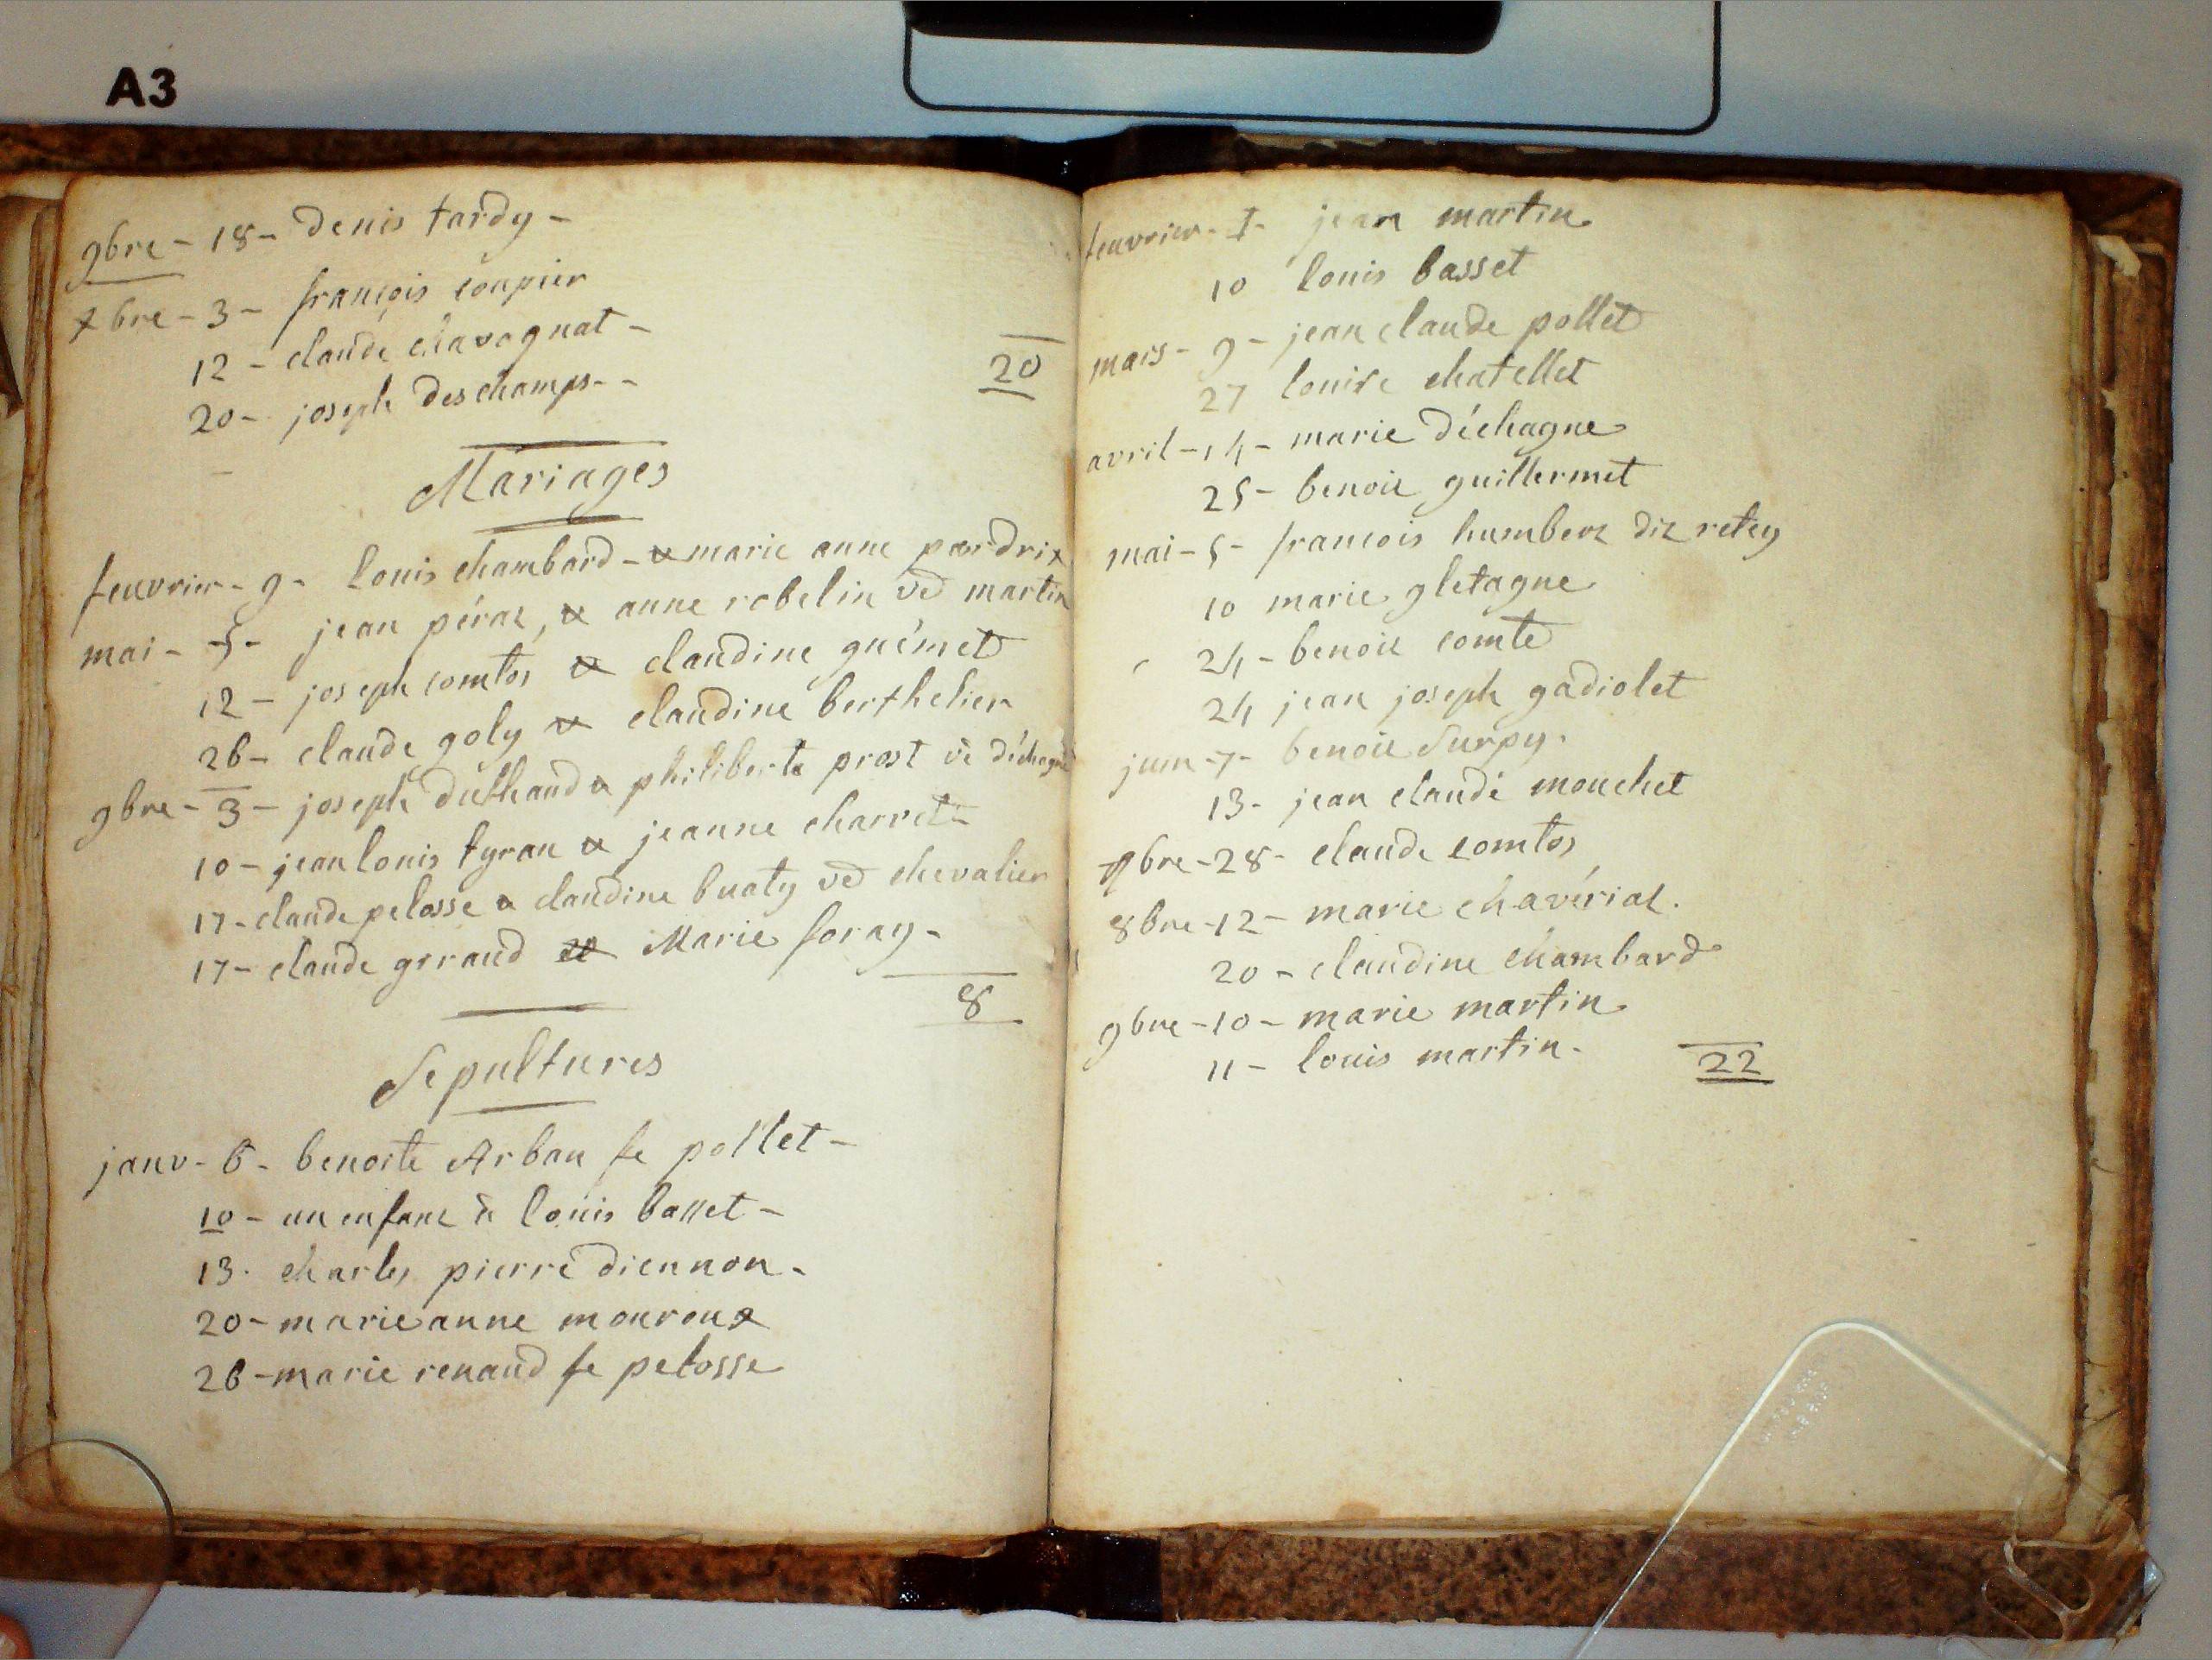 A3
9bre - 18 - denis tardy -
xbre - 3 - françois coupier
12 - claude chavagnat -
20 - joseph deschamps - -
20
Mariages
feuvrier - 9 - louis chambard - et marie anne perdrix
mai - 5 - jean péraz, et anne robelin vë martin
12 - joseph comtos et claudine guémet
26 - claude goly et claudine berthelier
9bre - 3 - joseph duthaud et philiberte prost vë déchagne
10 - jean louis tyran et jeanne charreti
17 - claude pelosse et claudine buaty vë chevalier
17 - claude graud et Marie foray -
8
Sepultures
janv - 6 - benoite Arban fe pollet -
10 - un enfant à louis basset -
13 - charles pierre diennon -
20 - marie anne mouroux
26 - marie renaud fe pelosse
feuvrier - 1 - jean martin
10 louis basset
mars - 9 - jean claude pollet
27 louise chatellet
avril - 14 - marie déchagne
25 - benoit guillermet
mai - 5 - francois humbert dit retey
10 marie gletagne
24 - benoit comte
24 jean joseph gadiolet
juin - 7 - benoit Surpy.
13 - jean claude mouchet
7bre - 28 - claude comtos
8bre - 12 - marie chavériat.
20 - claudine chambard
9bre - 10 - marie martin
11 - louis martin -
22